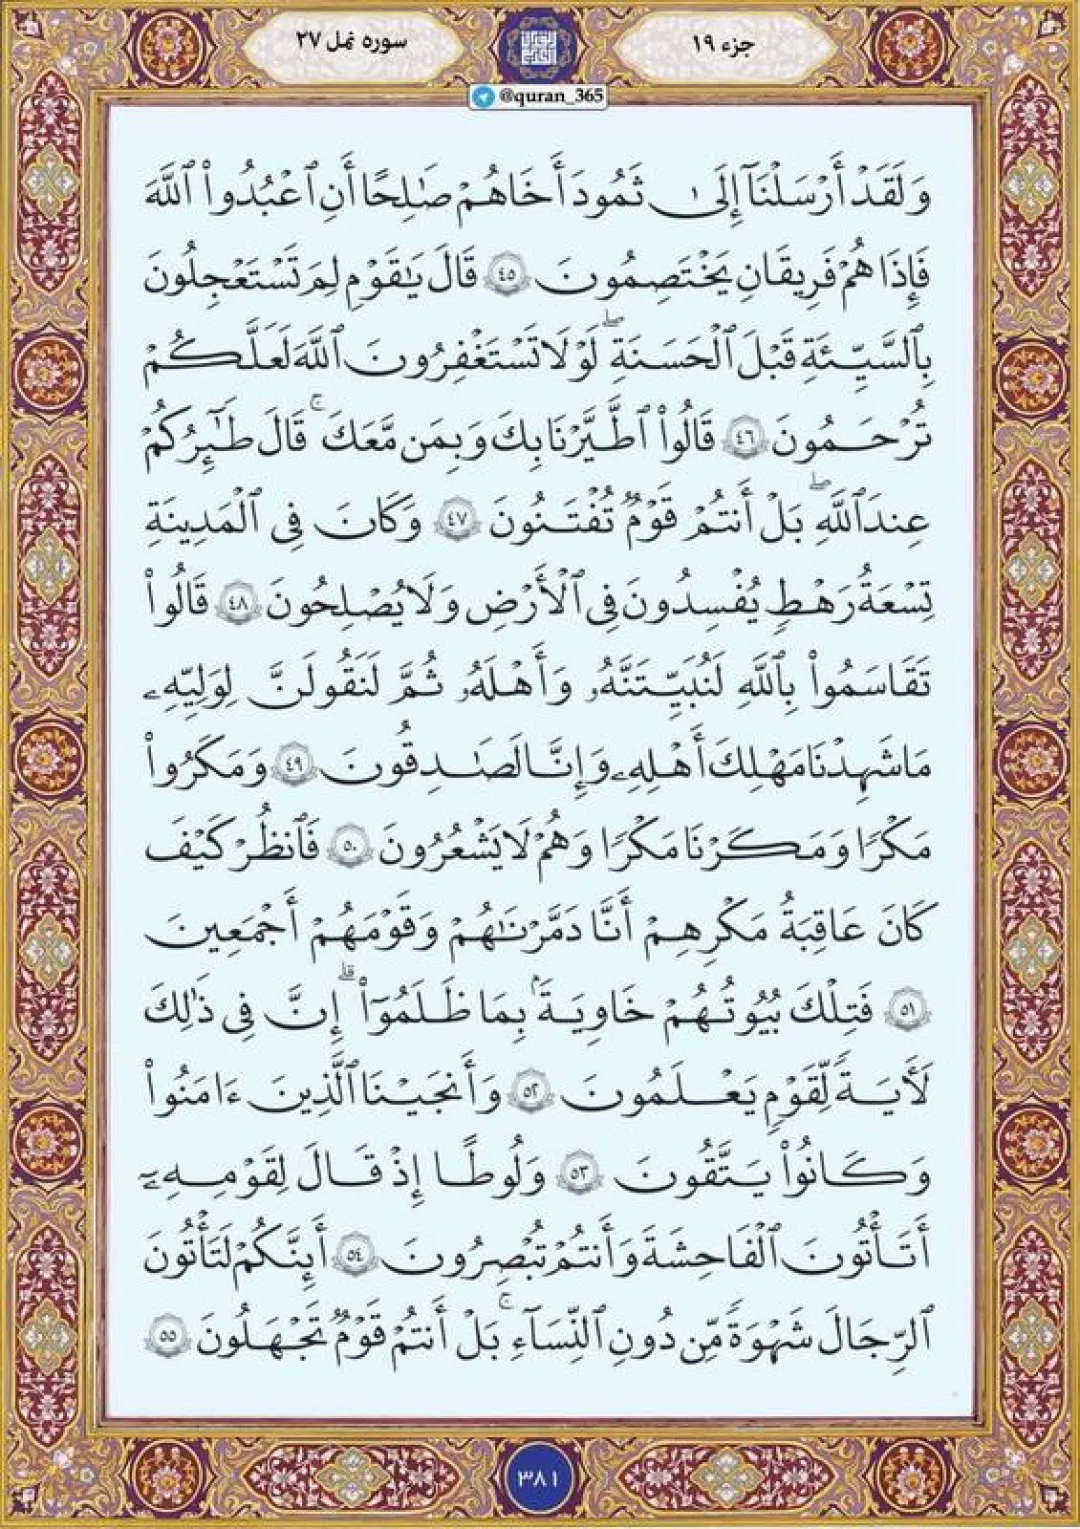 جزء ۱۹
سوره نمل ۲۷
@quran_365
وَلَقَدْ أَرْسَلْنَآ إِلَىٰ ثَمُودَ أَخَاهُمْ صَٰلِحًا أَنِ ٱعْبُدُوا۟ ٱللَّهَ
فَإِذَا هُمْ فَرِيقَانِ يَخْتَصِمُونَ ٤٥ قَالَ يَٰقَوْمِ لِمَ تَسْتَعْجِلُونَ
بِٱلسَّيِّئَةِ قَبْلَ ٱلْحَسَنَةِ ۖ لَوْلَا تَسْتَغْفِرُونَ ٱللَّهَ لَعَلَّكُمْ
تُرْحَمُونَ ٤٦ قَالُوا۟ ٱطَّيَّرْنَا بِكَ وَبِمَن مَّعَكَ ۚ قَالَ طَٰٓئِرُكُمْ
عِندَ ٱللَّهِ ۖ بَلْ أَنتُمْ قَوْمٌ تُفْتَنُونَ ٤٧ وَكَانَ فِى ٱلْمَدِينَةِ
تِسْعَةُ رَهْطٍ يُفْسِدُونَ فِى ٱلْأَرْضِ وَلَا يُصْلِحُونَ ٤٨ قَالُوا۟
تَقَاسَمُوا۟ بِٱللَّهِ لَنُبَيِّتَنَّهُۥ وَأَهْلَهُۥ ثُمَّ لَنَقُولَنَّ لِوَلِيِّهِۦ
مَا شَهِدْنَا مَهْلِكَ أَهْلِهِۦ وَإِنَّا لَصَٰدِقُونَ ٤٩ وَمَكَرُوا۟
مَكْرًا وَمَكَرْنَا مَكْرًا وَهُمْ لَا يَشْعُرُونَ ٥٠ فَٱنظُرْ كَيْفَ
كَانَ عَٰقِبَةُ مَكْرِهِمْ أَنَّا دَمَّرْنَٰهُمْ وَقَوْمَهُمْ أَجْمَعِينَ
٥١ فَتِلْكَ بُيُوتُهُمْ خَاوِيَةًۢ بِمَا ظَلَمُوٓا۟ ۗ إِنَّ فِى ذَٰلِكَ
لَءَايَةً لِّقَوْمٍ يَعْلَمُونَ ٥٢ وَأَنجَيْنَا ٱلَّذِينَ ءَامَنُوا۟
وَكَانُوا۟ يَتَّقُونَ ٥٣ وَلُوطًا إِذْ قَالَ لِقَوْمِهِۦٓ
أَتَأْتُونَ ٱلْفَٰحِشَةَ وَأَنتُمْ تُبْصِرُونَ ٥٤ أَئِنَّكُمْ لَتَأْتُونَ
ٱلرِّجَالَ شَهْوَةً مِّن دُونِ ٱلنِّسَآءِ ۚ بَلْ أَنتُمْ قَوْمٌ تَجْهَلُونَ ٥٥
۳۸۱